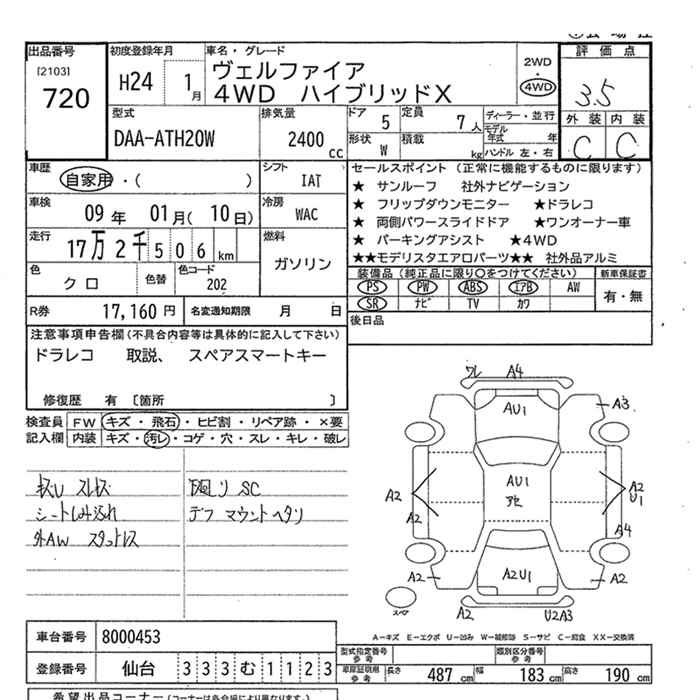 出品番号
[2103]
720
初度登録年月
H24 1月
車名・グレード
ヴェルファイア
4WD ハイブリッドX
2WD
・
4WD
評価点
3.5
外装 内装
C C
型式
DAA-ATH20W
排気量
2400 cc
ドア
5
定員
7人
形状
W
積載
kg
ディーラー・並行
モデル年式 年
ハンドル 左・右
車歴
自家用・( )
シフト
IAT
車検
09年 01月(10日)
冷房
WAC
走行
17万2千506km
燃料
ガソリン
色
クロ
色替
色コード
202
R券 17,160円
名変通知期限 月 日
セールスポイント (正常に機能するものに限ります)
★ サンルーフ 社外ナビゲーション
★ フリップダウンモニター ★ドラレコ
★ 両側パワースライドドア ★ワンオーナー車
★ パーキングアシスト ★4WD
★★モデリスタエアロパーツ★★ 社外品アルミ
装備品(純正品に限り〇をつけてください)
新車保証書
PS PW ABS エアB AW
SR ナビ TV カワ
有・無
後日品
注意事項申告欄(不具合内容等は具体的に記入して下さい)
ドラレコ 取説、 スペアスマートキー
修復歴 有 〔箇所 〕
検査員記入欄
FW キズ・飛石・ヒビ割・リペア跡・×要
内装 キズ・汚レ・コゲ・穴・スレ・キレ・破レ
シート
外AW スタットレス
SC
デフ マウントヘタリ
ワレ A4
A3
AU1
A2
A2
AU1
A2
U1
A4
A2
A2U1
A2
スペア
A2
U2A3
A-キズ E-エクボ U-凹み W-補修跡 S-サビ C-腐食 XX-交換済
車台番号 8000453
登録番号 仙台 333む1123
型式指定番号
参考
類別区分番号
参考
長さ 487cm 幅 183cm 高さ 190cm
希望出品コーナー